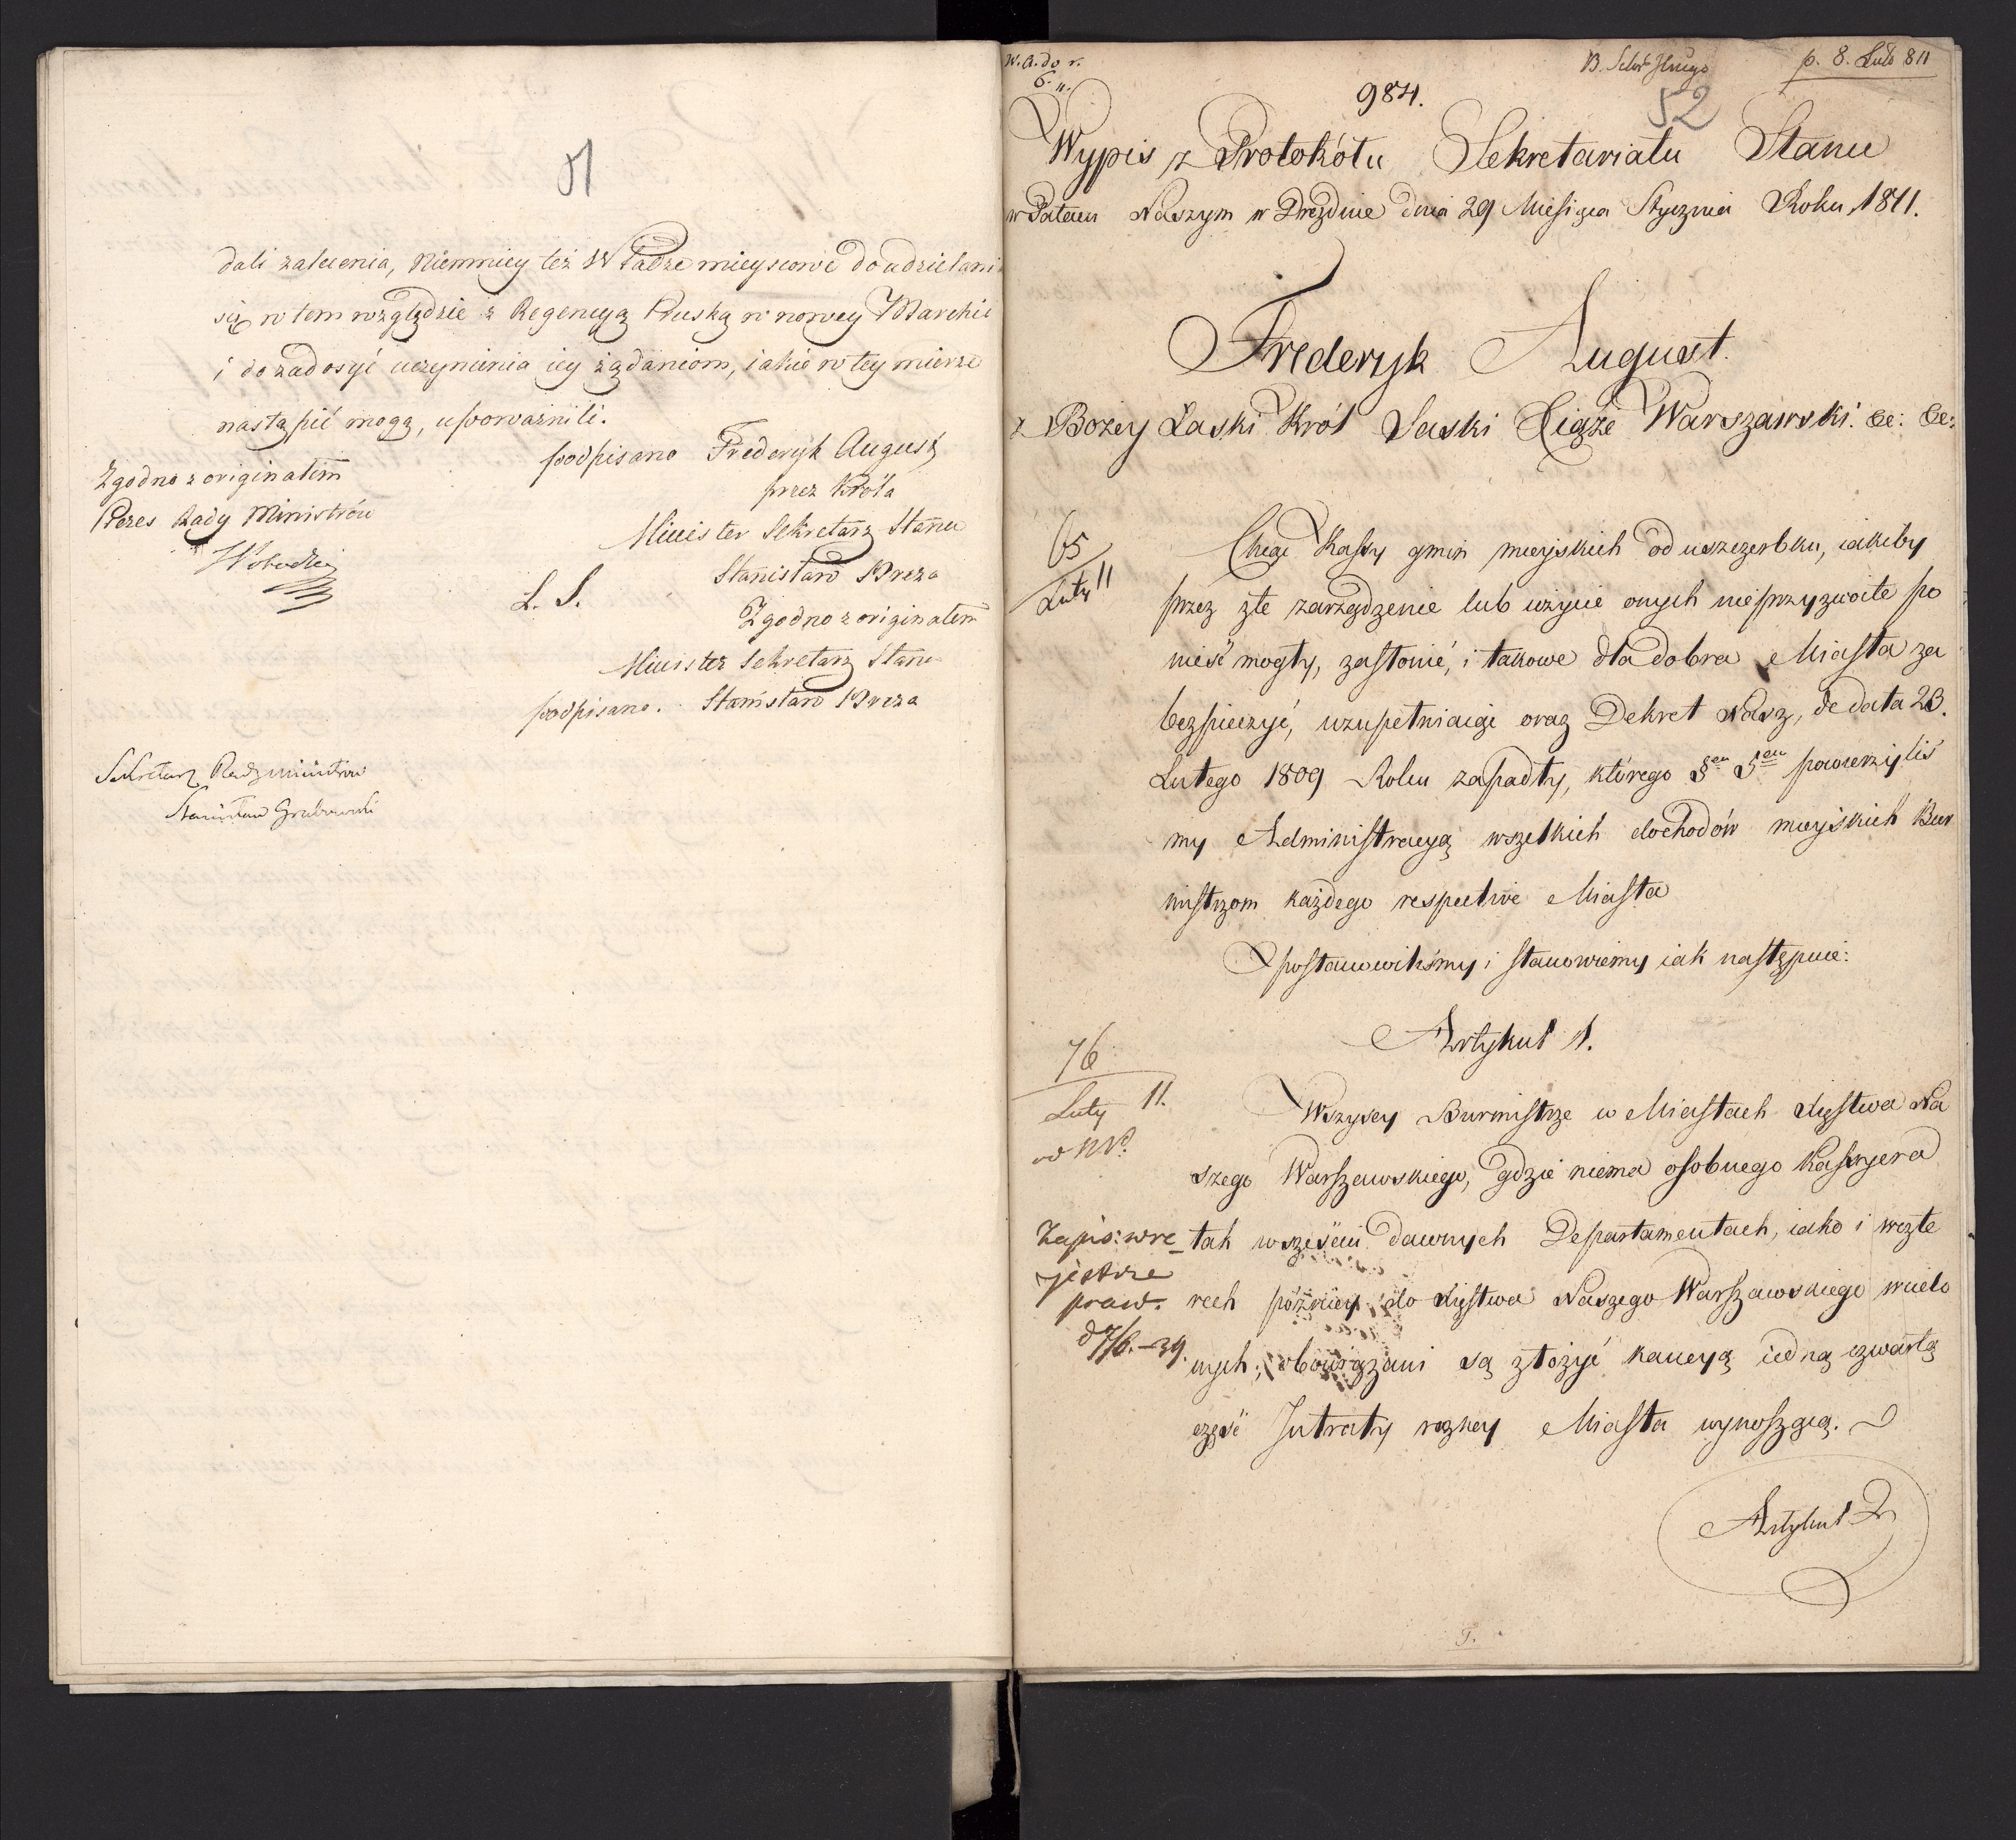 51
dali zalecenia, niemniey też Władze mieyscowe do udzielania
się w tem względzie z Regencyą Pruską w nowey Marchii
i do zadosyć uczynienia iey żądaniom, iakie w tey mierze
nastąpić mogą, upoważnili.
podpisano Fréderyk August
przez Króla
Minister Sekretarz Stanu
Stanisław Breza
L. S.
Zgodno z originałem
Minister Sekretarz Stanu
podpisano. Stanisław Breza
Zgodno z originałem
Prezes Rady Ministrów
Sekretarz Rady Ministrów
Stanisław Grabowski
W. A. do r.
6. 11.
p. 8. Lute 811
984.
52
Wypis z Protokółu Sekretariatu Stanu
w Pałacu Naszym w Dreźdnie dnia 29 Miesiąca Stycznia Roku 1811.
Frederyk August.
z Bożey Łaski Król Saski Xiąże Warszawski. &c: &c:
65
Luty 11
Chcąc Kassy gmin mieyskich od uszczerbku, iakiby
przez złe zarządzenie lub użycie onych nieprzyzwoite po
nieść mogły, zasłonić, i takowe dla dobra Miasta za
bezpieczyć, uzupełniaiąc oraz Dekret Nasz, de data 23.
Lutego 1809 Roku zapadły, którego §em 5em powierzyliś
my Administracyą wszelkich dochodów mieyskich Bur
mistrzom każdego respective Miasta
postanowiliśmy i stanowiemy iak następuie:
Artykuł 1.
76
Luty 11.
Wszyscy Burmistrze w Miastach Xięstwa Na
szego Warszawskiego, gdzie niema osobnego Kassyera
tak w sześciu dawnych Departamentach, iako i wczte
rech późniey do Xięstwa Naszego Warszawskiego wcielo
nych; obowiązani są złożyć kaucyą iedną czwartą
część Intraty roczney Miasta wynoszącą.
Zapis: w re_
jestrze
praw.
Artykuł 2